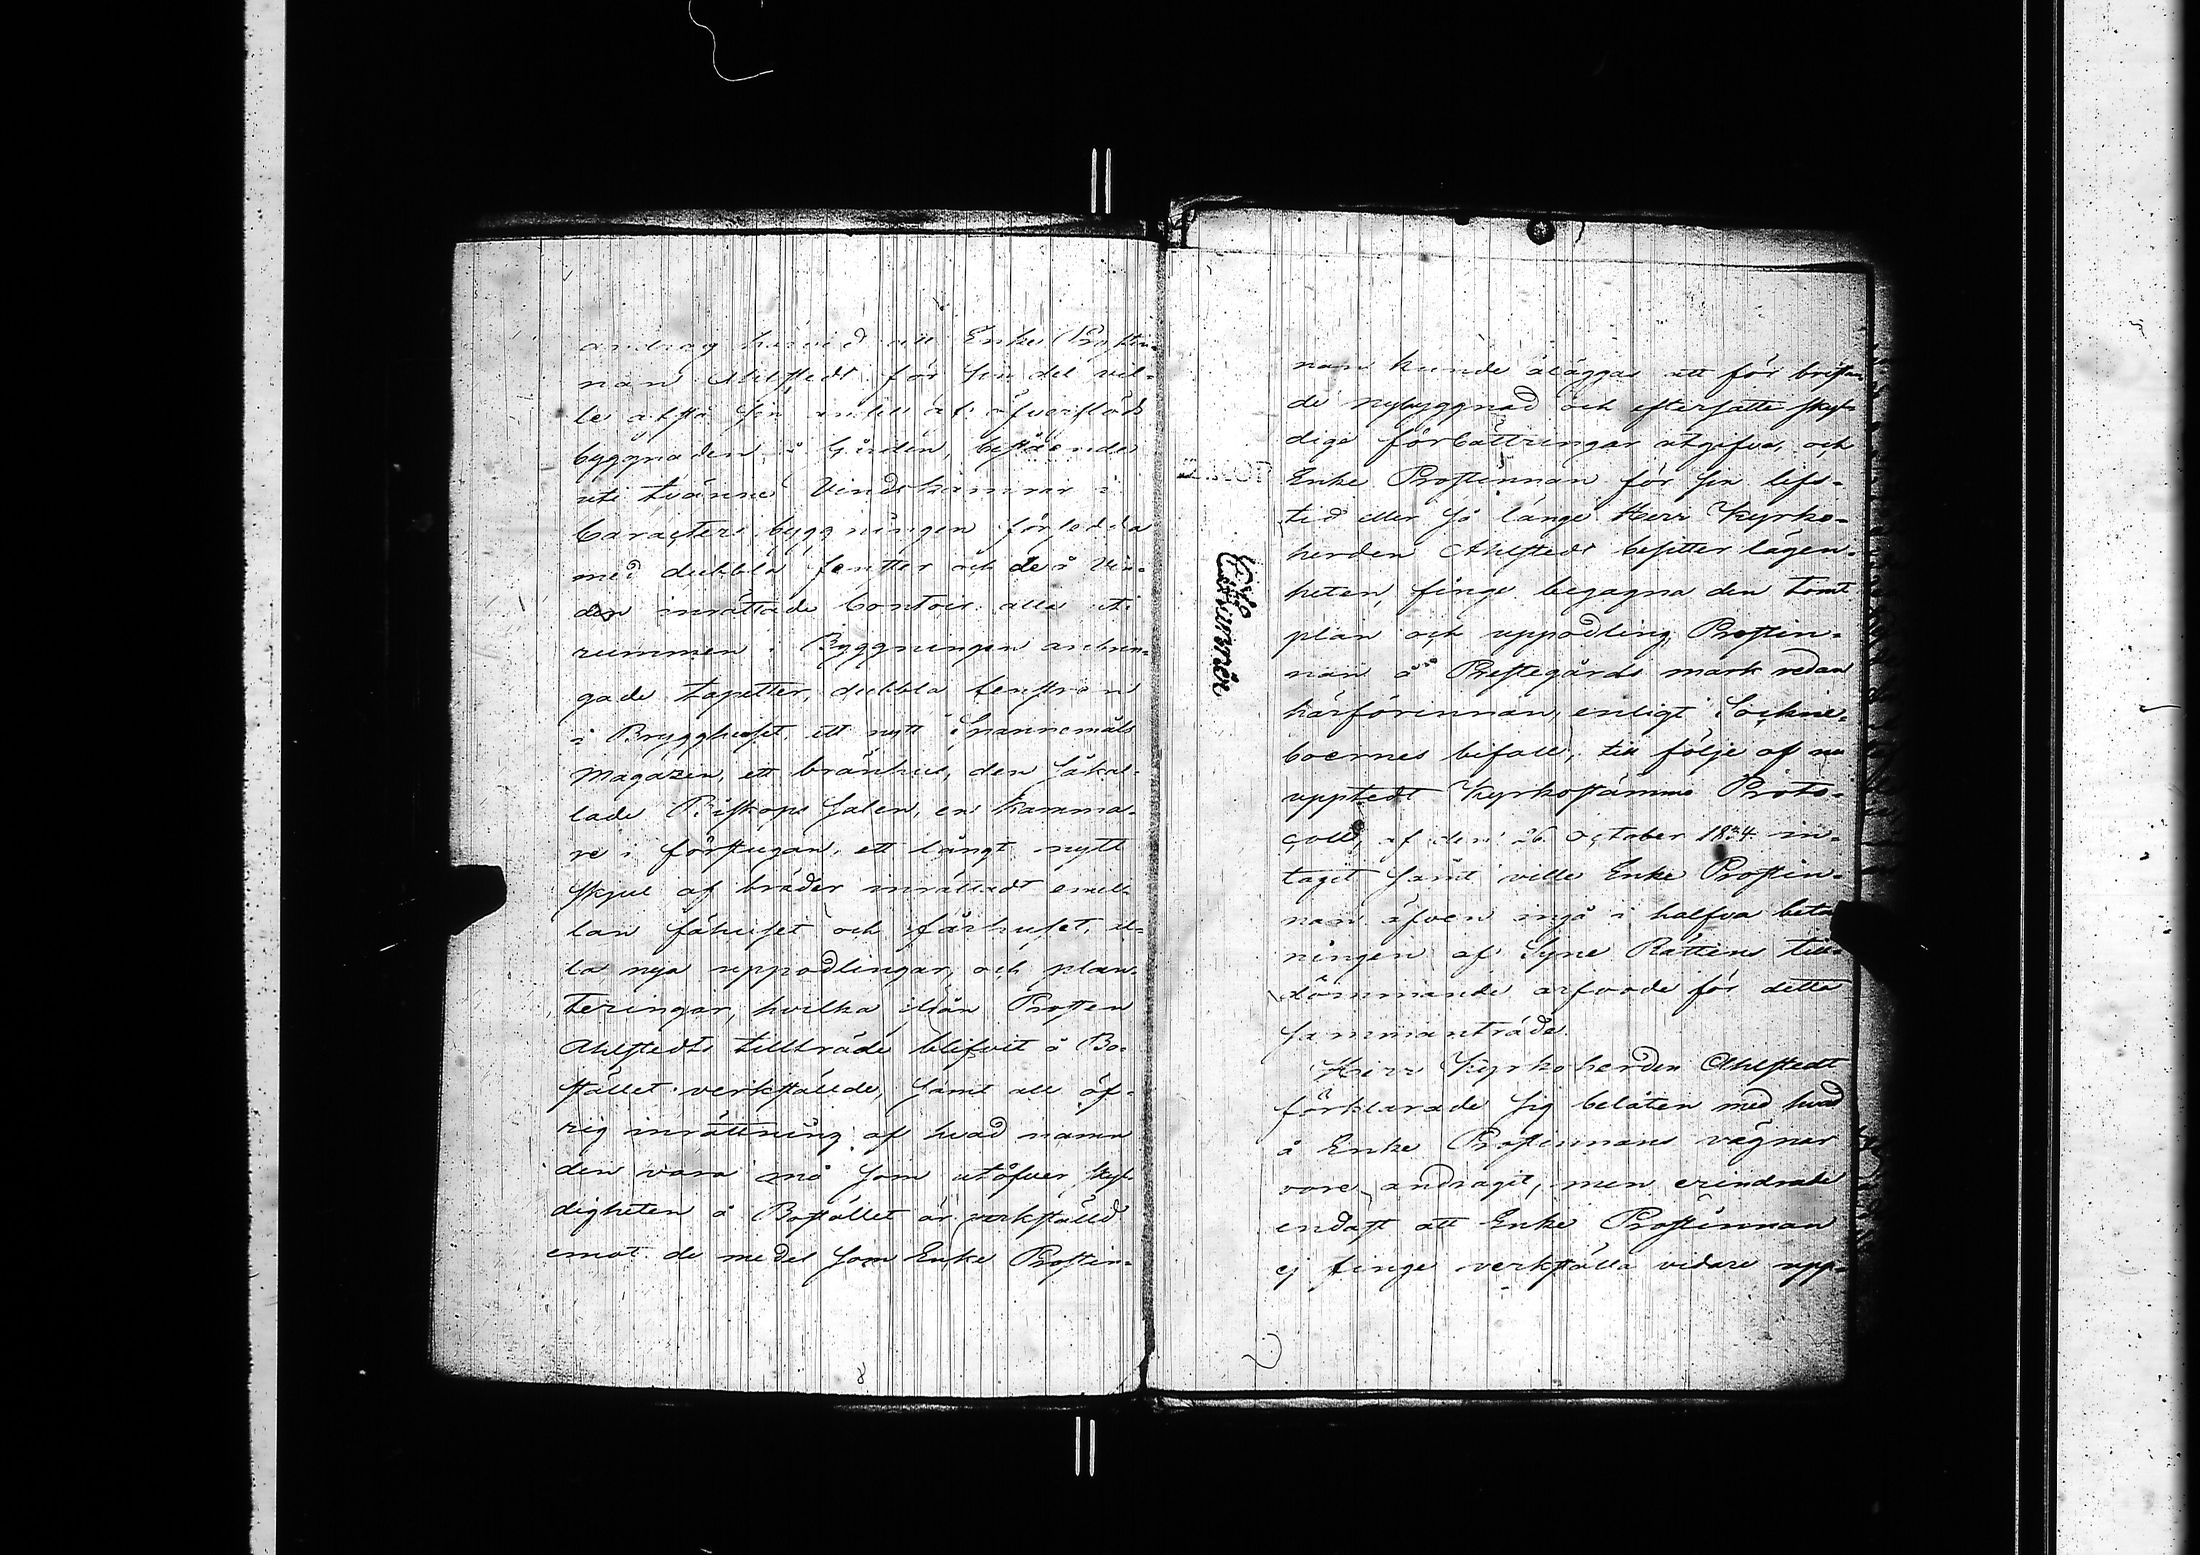 androg härvid att Enke Prostin-
nan Ahlstedt för sin del vil-
le afstå sin andel af öfverflöds
byggnaden å Gården, bestående
uti tvänne Vindskamrar i
Caracters byggningen försedda
med dubbla fenster och de å Vin-
den inrättade Contoir alla uti
rummen i Byggningen anbrin-
gade tapetter, dubbla fenstren
i Brygghuset, ett nytt Spannemåls
Magazin, ett bränhus, den såkal-
lade Biskops Salen, en kamma-
re i förstugan, ett långt nytt
skjul af bräder inrättadt emel-
lan fähuset och fårhuset, al-
la nya uppodlingar, och plan-
teringar, hvilka ifrån Prosten
Ahlstedts tillträde blifvit å Bo-
stället verkställde, samt all öf-
rig inrättning af hvad namn
den vara må som utöfver skyl-
digheten å Bostället är verkställd
emot de medel som Enke Prostin-
nan kunde åläggas att för bristan-
de nybyggnad och eftersatte skyl-
dige förbättringar utgifva, och
Enke Prostinnan för sin lifs-
tid eller så länge Herr Kyrko-
herden Ahlstedt besitter lägen-
heten, finge begagna den tomt
plan och uppodling Prostin-
nan å Prestegårds mark redan
härförinnan, enligt Sockne-
boernes bifall, till följe af nu
upptedt Kyrkostämmo Proto-
coll, af den 26 October 1824 in-
tagit samt ville Enke Prostin-
nan äfven ingå i halfva betal-
ningen af Syne Rättens till-
dömmande arfvode för detta
sammanträde.
Herr Kyrkoherden Ahlstedt
förklarade sig belåten med hvad
å Enke Prostinnans vägnar
vore andragit, men erindrade
endast att Enke Prostinnan
ej finge verkställa vidare upp-